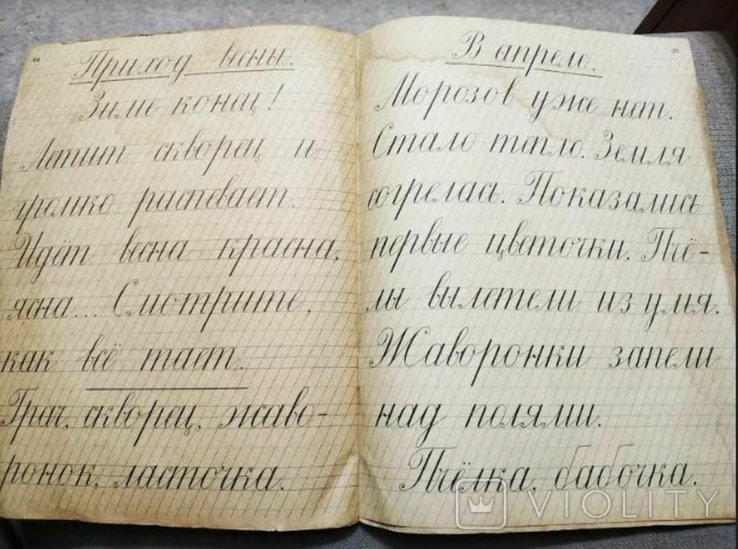 Приход весны.
Зиме конец!
Летит скворец и
громко распевает.
Идёт весна красна,
ясна... Смотрите,
как всё тает.
Грач, скворец, жаво-
ронок, ласточка.
В апреле.
Морозов уже нет.
Стало тепло. Земля
согрелась. Показались
первые цветочки. Пчё-
лы вылетели из улья.
Жаворонки запели
над полями.
Пчёлка, бабочка.
VIOLITY